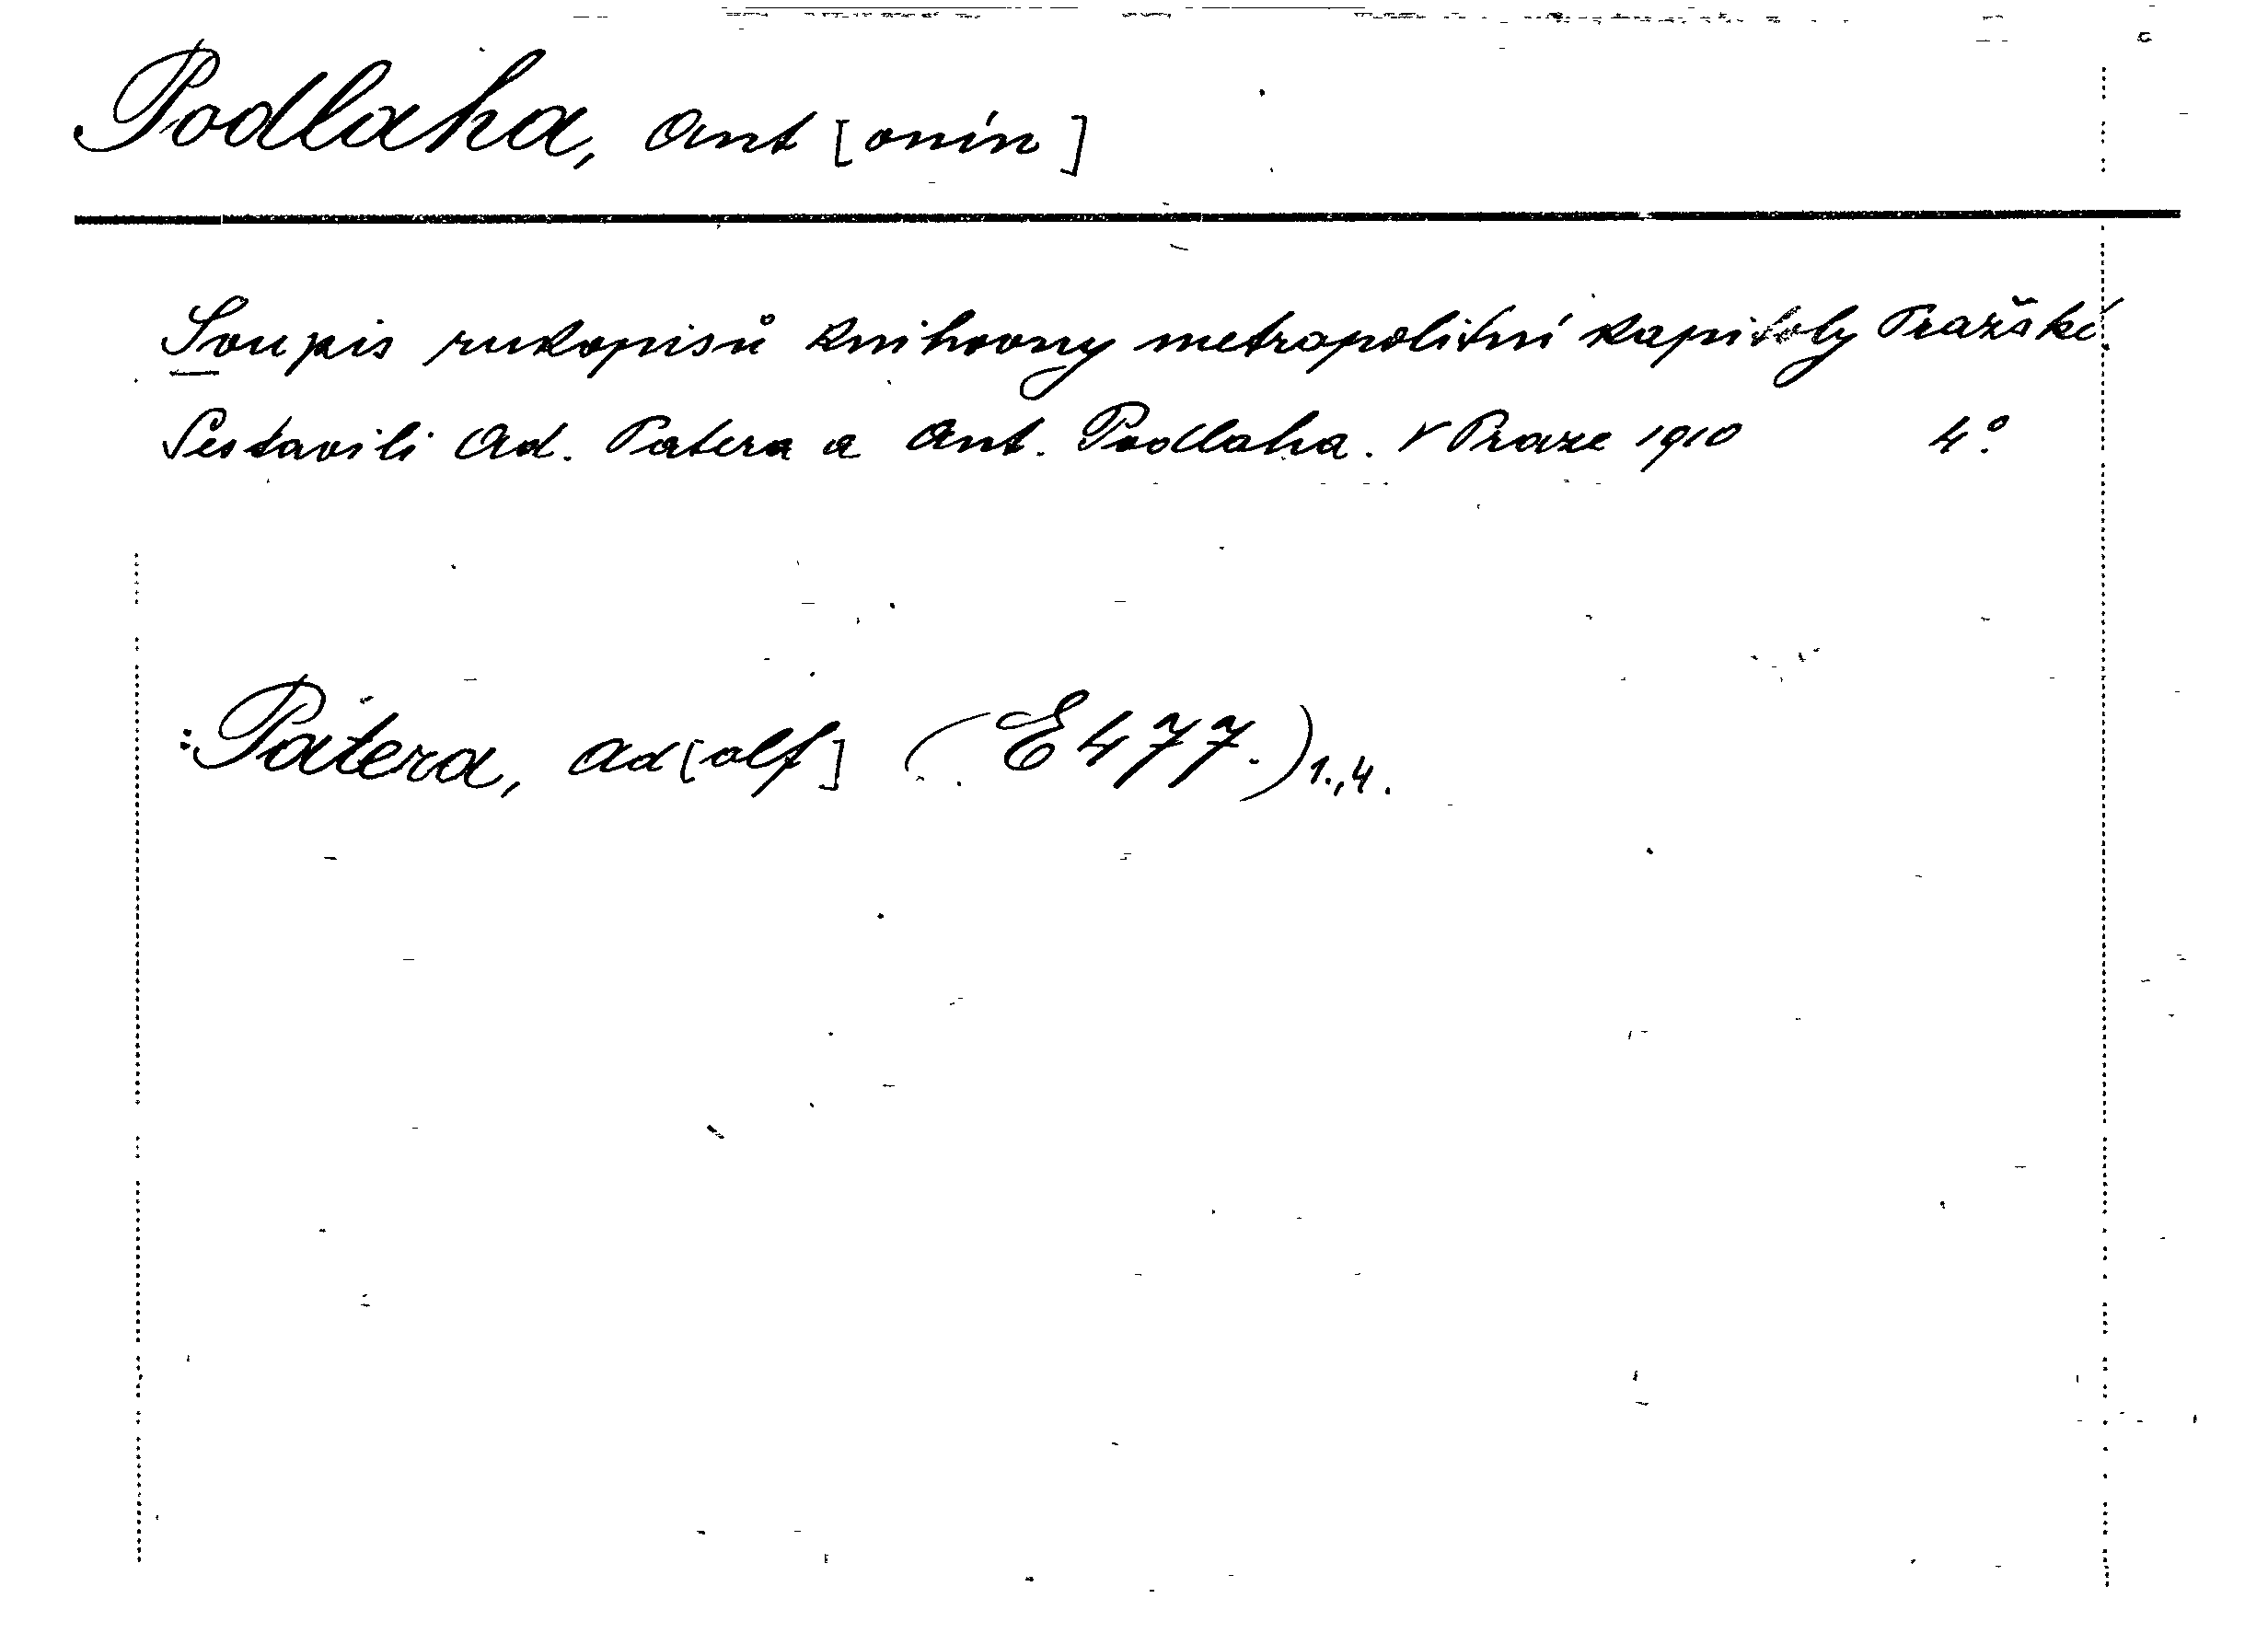 Podlaha, Ant [onín]
Soupis rukopisů knihovny metropolitní kapitoly Pražské.
Sestavili Ad. Patera a Ant. Podlaha. V Praze 1910 4°.
: Patera, Ad[olf] (E 477.) 1.,4.